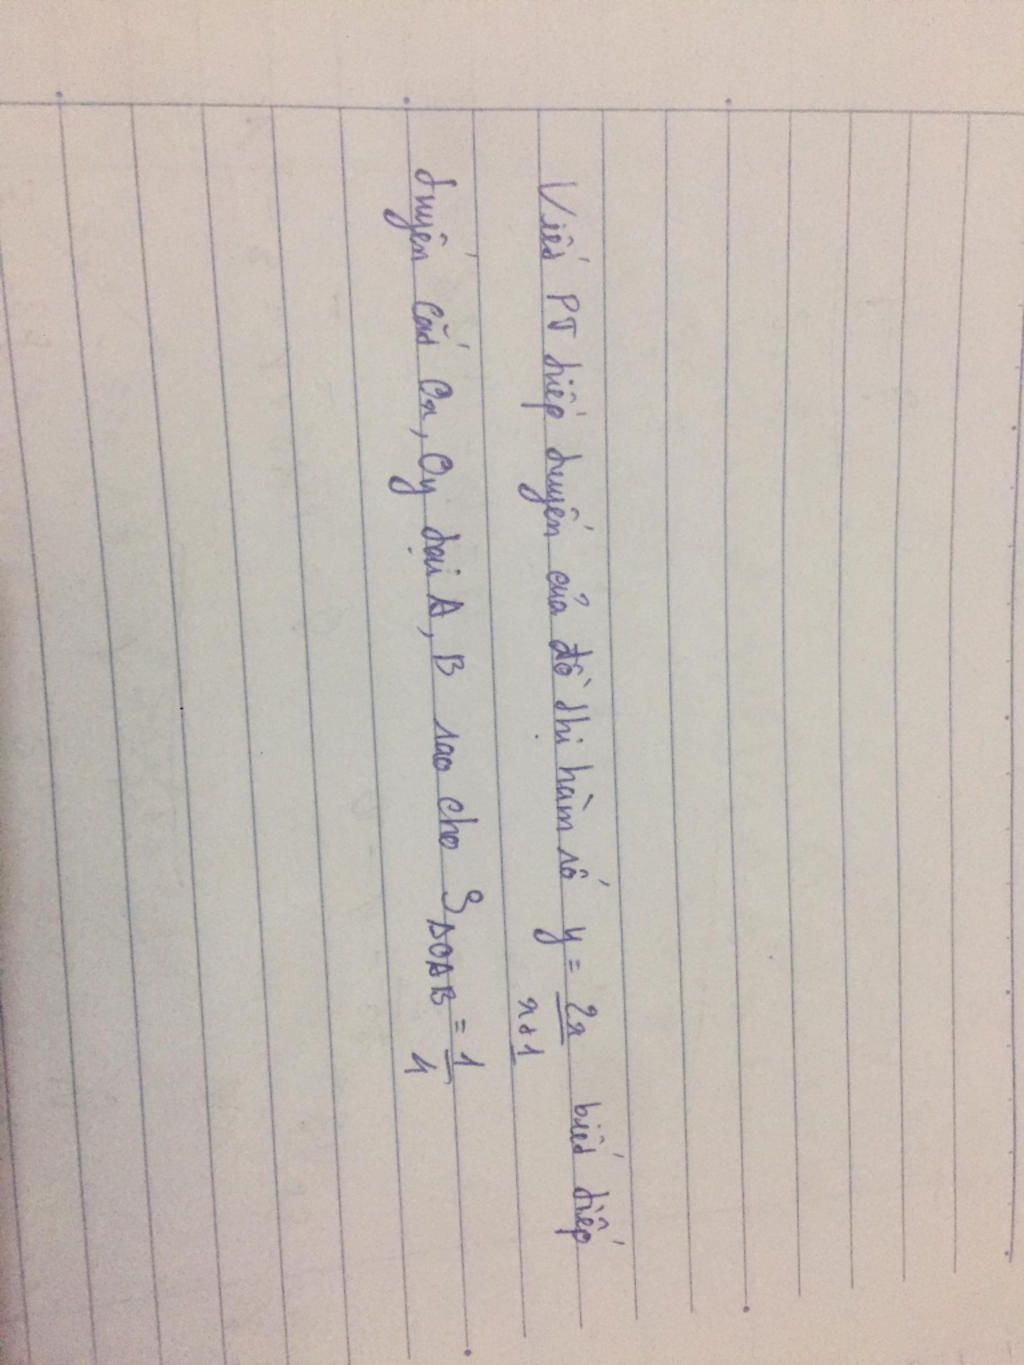 Viết PT tiếp tuyến của đồ thị hàm số y = 2x/x+1 biết tiếp
tuyến cắt Ox, Oy tại A, B sao cho SΔOAB = 1/4